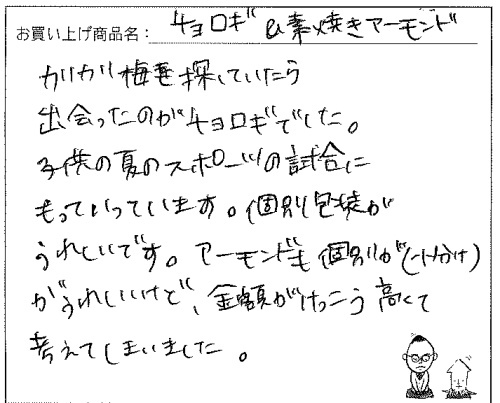 お買い上げ商品名: チョロギ &素焼きアーモンド
カリカリ梅を探していたら
出会ったのがチョロギでした。
子供の夏のスポーツの試合に
もっていっています。個別包装が
うれしいです。アーモンドも個別が(小分け)
がうれしいけど、金額がけっこう高くて
考えてしまいました。